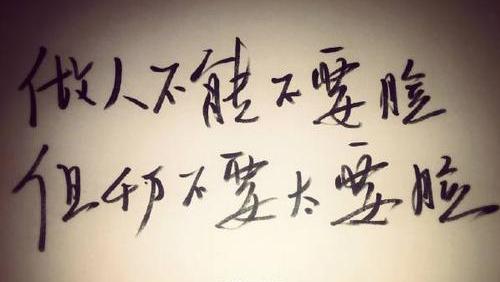 做人不能不要脸
但千万不要太要脸